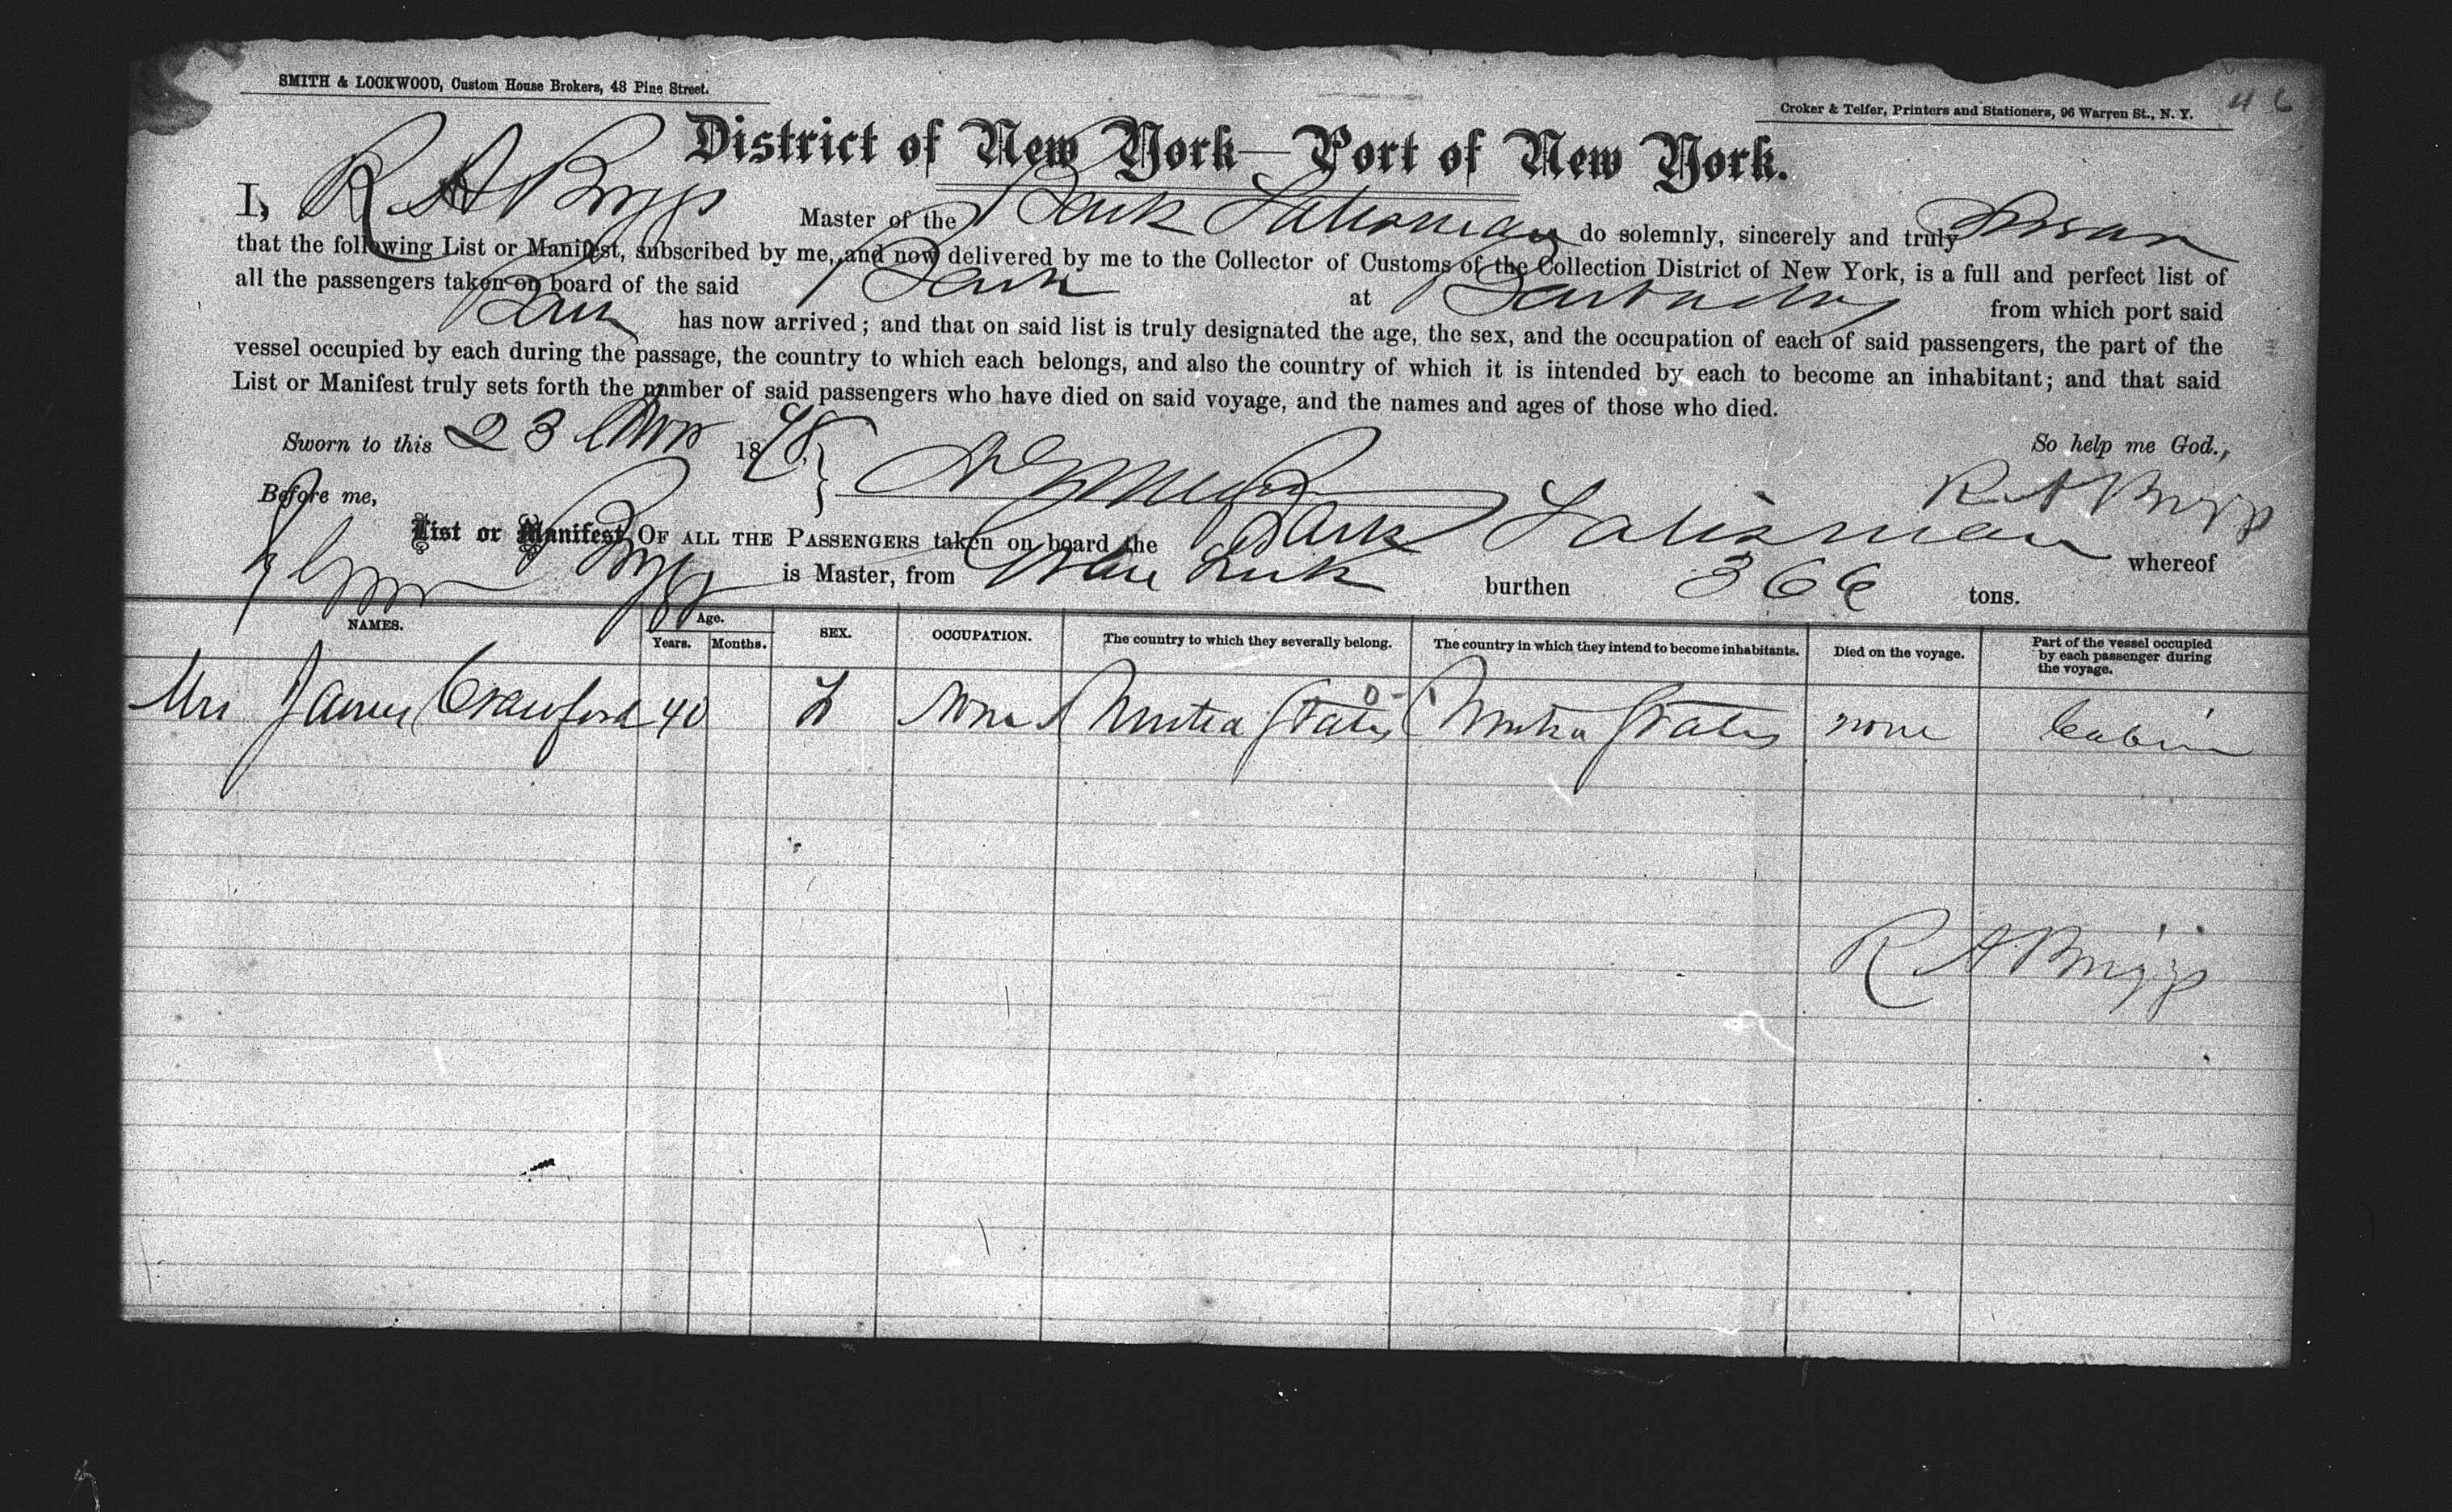 SMITH & LOCKWOOD, Custom House Brokers, 48 Pine Street.
Croker & Telfer, Printers and Stationers, 96 Warren St., N. Y. 46
District of New York—Port of New York.
I, R A Briggs Master of the Bark Talisman do solemnly, sincerely and truly Swear
that the following List or Manifest, subscribed by me, and now delivered by me to the Collector of Customs of the Collection District of New York, is a full and perfect list of
all the passengers taken on board of the said Bark at Barbados from which port said
Bark has now arrived; and that on said list is truly designated the age, the sex, and the occupation of each of said passengers, the part of the
vessel occupied by each during the passage, the country to which each belongs, and also the country of which it is intended by each to become an inhabitant; and that said
List or Manifest truly sets forth the number of said passengers who have died on said voyage, and the names and ages of those who died.
Sworn to this 23 1878. So help me God.,
Before me, R A Briggs
List or Manifest OF ALL THE PASSENGERS taken on board the Bark Talisman whereof
Briggs is Master, from burthen 366 tons.
NAMES. Age. Years. Months. SEX. OCCUPATION. The country to which they severally belong. The country in which they intend to become inhabitants. Died on the voyage. Part of the vessel occupied by each passenger during the voyage.
Mrs James Crawford 40 F None United States United States none Cabin
R A Briggs